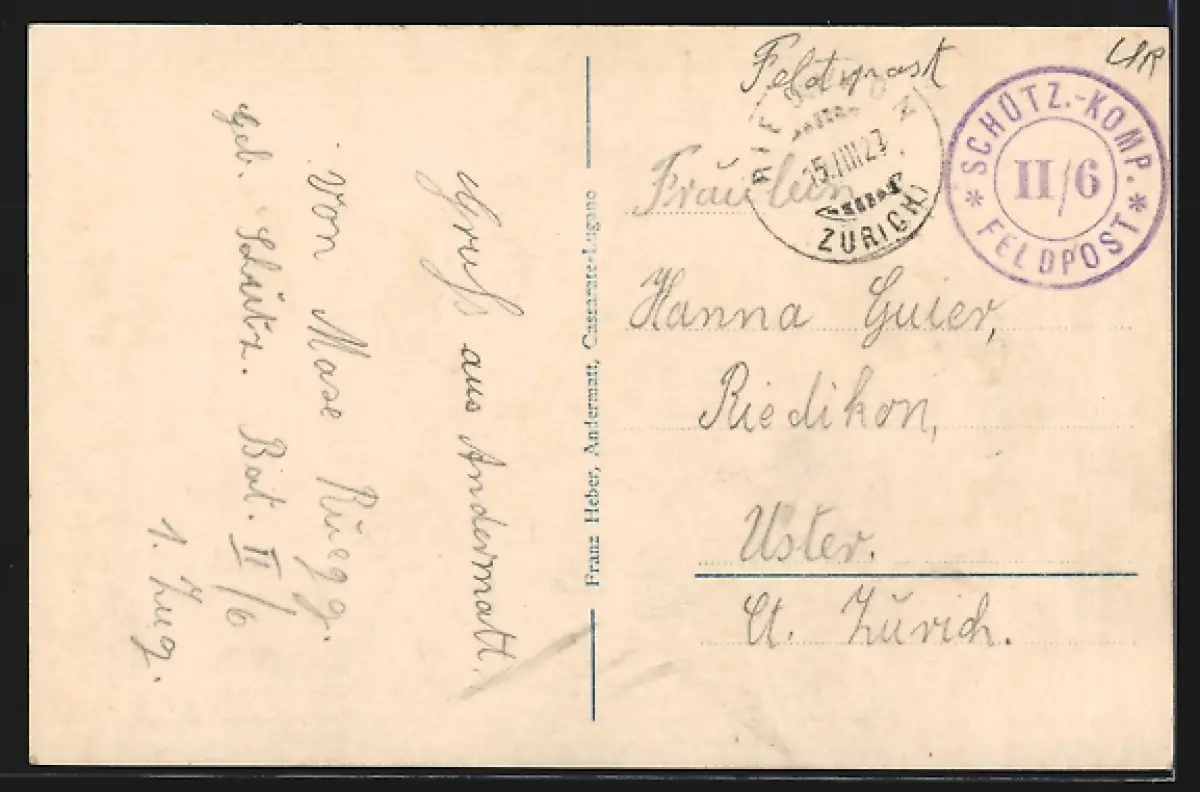 Gruss aus Andermatt.
Von Max Rüegg.
Geb. Schütz. Bat. II/6
1. Zug.
Franz Heber, Andermatt, Cassarate-Lugano
Feldpost
15.VIII.23
ZÜRICH
SCHÜTZ.-KOMP.
II/6
* FELDPOST *
Fräulein
Hanna Guier,
Riedikon,
Uster.
Ct. Zürich.